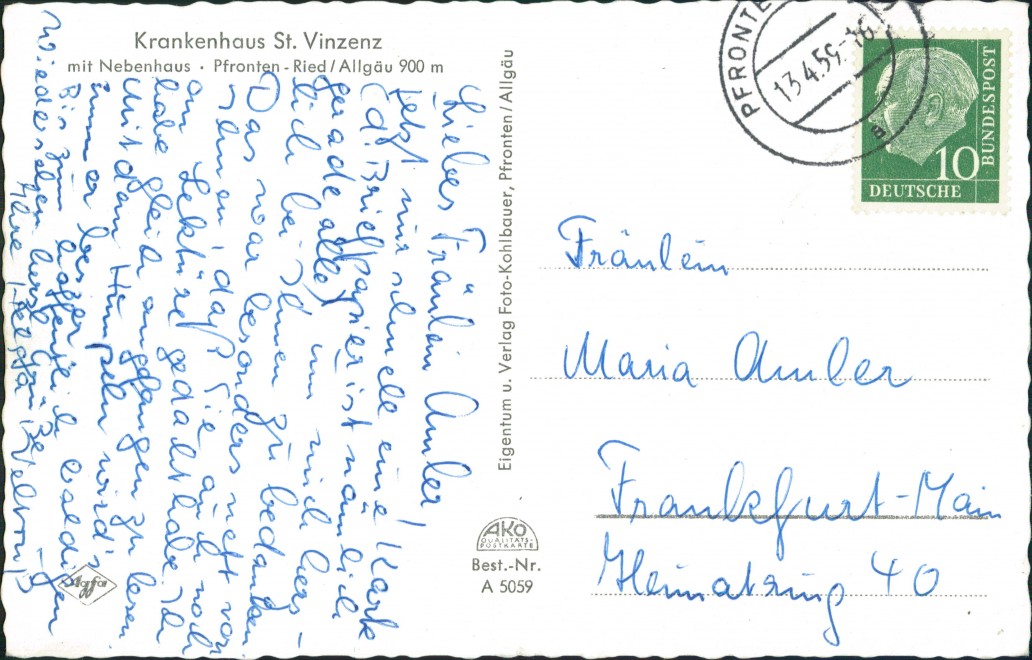 Krankenhaus St. Vinzenz
mit Nebenhaus · Pfronten-Ried/Allgäu 900 m
Liebes Fräulein Amler!
Jetzt nur schnell eine Kark
(d. Briefpapier ist nämlich
gerade alle) um mich herz-
lich bei Ihnen zu bedanken.
Das war besonders nett von
Ihnen, daß Sie auch noch
an Lektüre gedacht habe. Ich
habe gleich angefangen zu lesen.
Mit dem Humpeln wird's
immer besser
Bis zum hoffentlich baldigen
Wiedersehen herzl. Grüße
Ihre Helga
Eigentum u. Verlag Foto-Kohlbauer, Pfronten/Allgäu
AKO
QUALITÄTS-
POSTKARTE
Best.-Nr.
A 5059
Agfa
PFRONTE
13.4.59.-18
a
10
DEUTSCHE
BUNDESPOST
Fräulein
Maria Amler
Frankfurt-Main
Heimatring 40